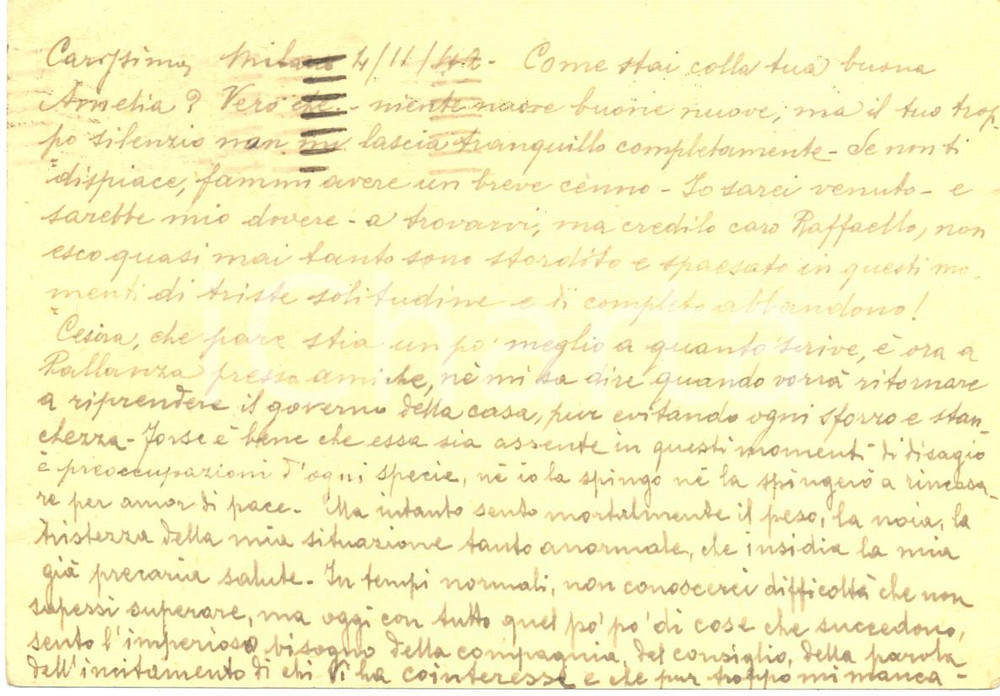 Carissimo, Milano 4/11/42 - Come stai colla tua buona
Amelia? Vero che - niente nuove buone nuove, ma il tuo trop=
po silenzio non mi lascia tranquillo completamente - Se non ti
dispiace, fammi avere un breve cenno - Io sarei venuto - e
sarebbe mio dovere - a trovarvi, ma credilo caro Raffaello, non
esco quasi mai tanto sono stordito e spaesato in questi mo=
menti di triste solitudine e di completo abbandono!
Cesira, che pare stia un po' meglio a quanto scrive, è ora a
Pallanza presso amiche, nè mi sa dire quando vorrà ritornare
a riprendere il governo della casa, pur evitando ogni sforzo e stan=
chezza - Forse è bene che essa sia assente in questi momenti di disagio
e preoccupazioni d'ogni specie, nè io la spingo nè la spingerò a rincasa=
re per amor di pace - Ma intanto sento mortalmente il peso, la noia, la
tristezza della mia situazione tanto anormale, che insidia la mia
già precaria salute - In tempi normali, non conoscerei difficoltà che non
sapessi superare, ma oggi con tutto quel po' po' di cose che succedono,
sento l'imperioso bisogno della compagnia, del consiglio, della parola
dell'incitamento di chi vi ha cointeresse e che pur troppo mi manca -
iCharta